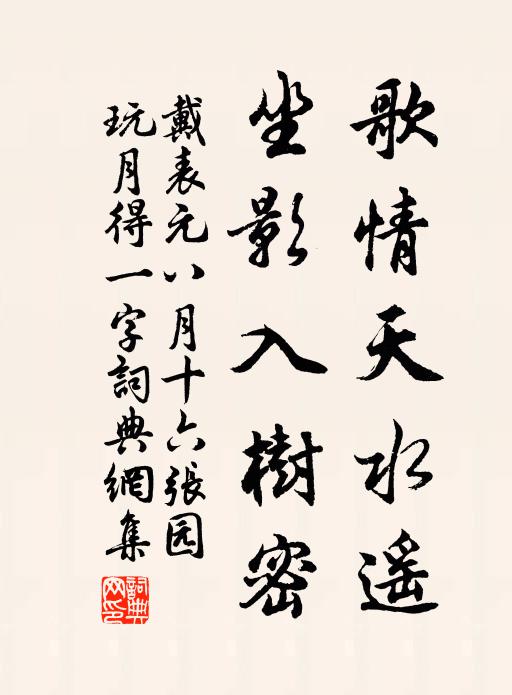 歌情天水遥
坐影入樹密
戴表元八月十六張园
玩月得一字詞典網集
詞典网印